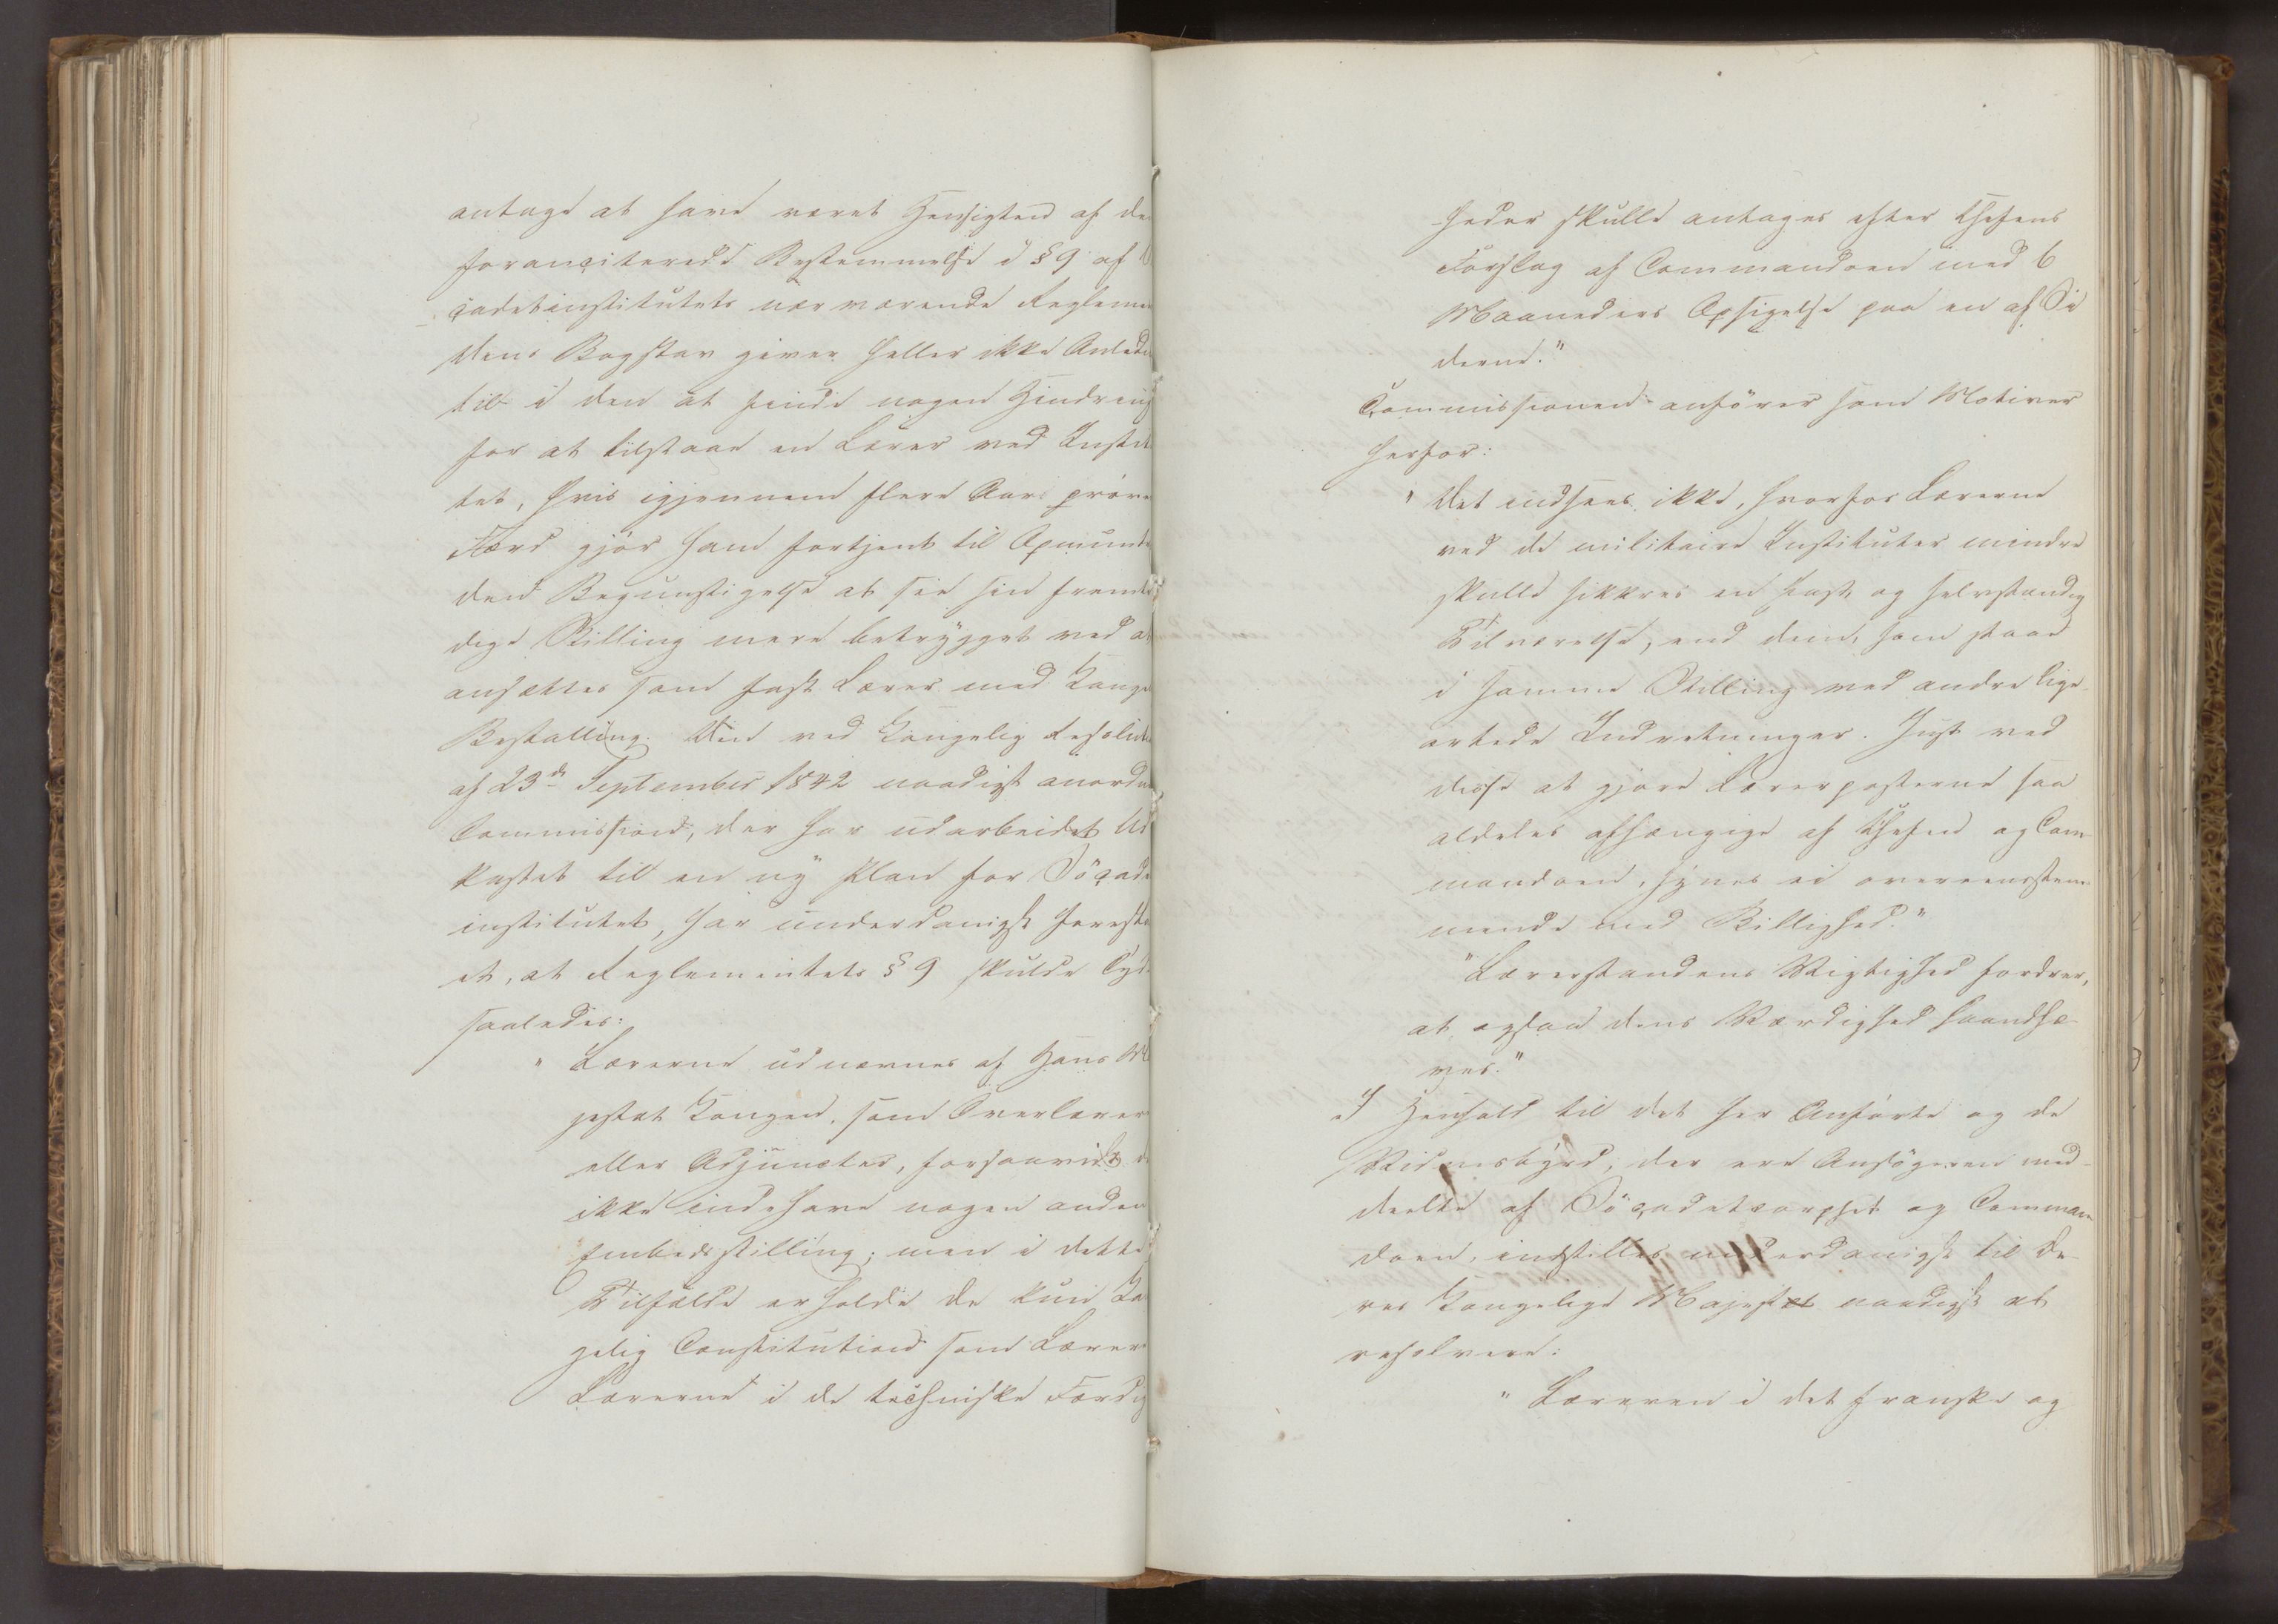 antage at have været Hensigten af de
foranciterede Bestemmelse i § 9 af
cadetinstitutets nærværende Reglemen
dens Bogstav giver heller ikke Anledn
til i den at finde nogen Hindring
for at tilstaae en Lærer ved Instit
tet, hvis igjennem flere Aar prøve
Færd gjör ham fortjent til Opmunt
den Begunstigelse at see sin fremti
dige Stilling mere betrygget ved at
ansættes som fast Lærer med Konge
Bestalling. Den ved Kongelig Resoluti
af 23de September 1842 naadigst anordn
Commission, der har udarbeidet Ud
kastet til en ny Plan for Söcade
institutet, har underdanigst forest
et, at Reglementets § 9 skulde lyde
saaledes:
" Lærerne udnævnes af Hans Ma
jestæt Kongen, som Overlærer
eller Adjuncter, forsaavidt de
ikke indehave nogen anden
Embedsstilling; men i dette
Tilfælde erholde de kun Ko
gelig Constitution som Lærer
Lærerne i de techniske Færdig
heder skulle antages efter Chefens
Forslag af Commandoen med 6
Maaneders Opsigelse paa en af Si
derne."
Commissionen anförer som Motiver
herfor:
" Det indsees ikke, hvorfor Lærerne
ved de militaire Instituter mindre
skulle sikkres en fast og selvstændig
Tilværelse, end dem, som staae
i samme Stilling ved andre lige
artede Indretninger. Just ved
disse at gjøre Lærerposterne saa
aldeles afhængige af Chefen og Com
mandoen, synes ei overeensstem
mende med Billighed."
"Lærerstandens Vigtighed fordrer,
at ogsaa dens Værdighed haandhæ
ves."
I Henhold til det her Anförte og de
Vidnesbyrd, der ere Ansögeren med-
deelte af Söcadetcorpset og Comman
doen, indstilles underdanigst til De-
res Kongelige Majestæt naadigst at
resolvere:
" Læreren i det franske og